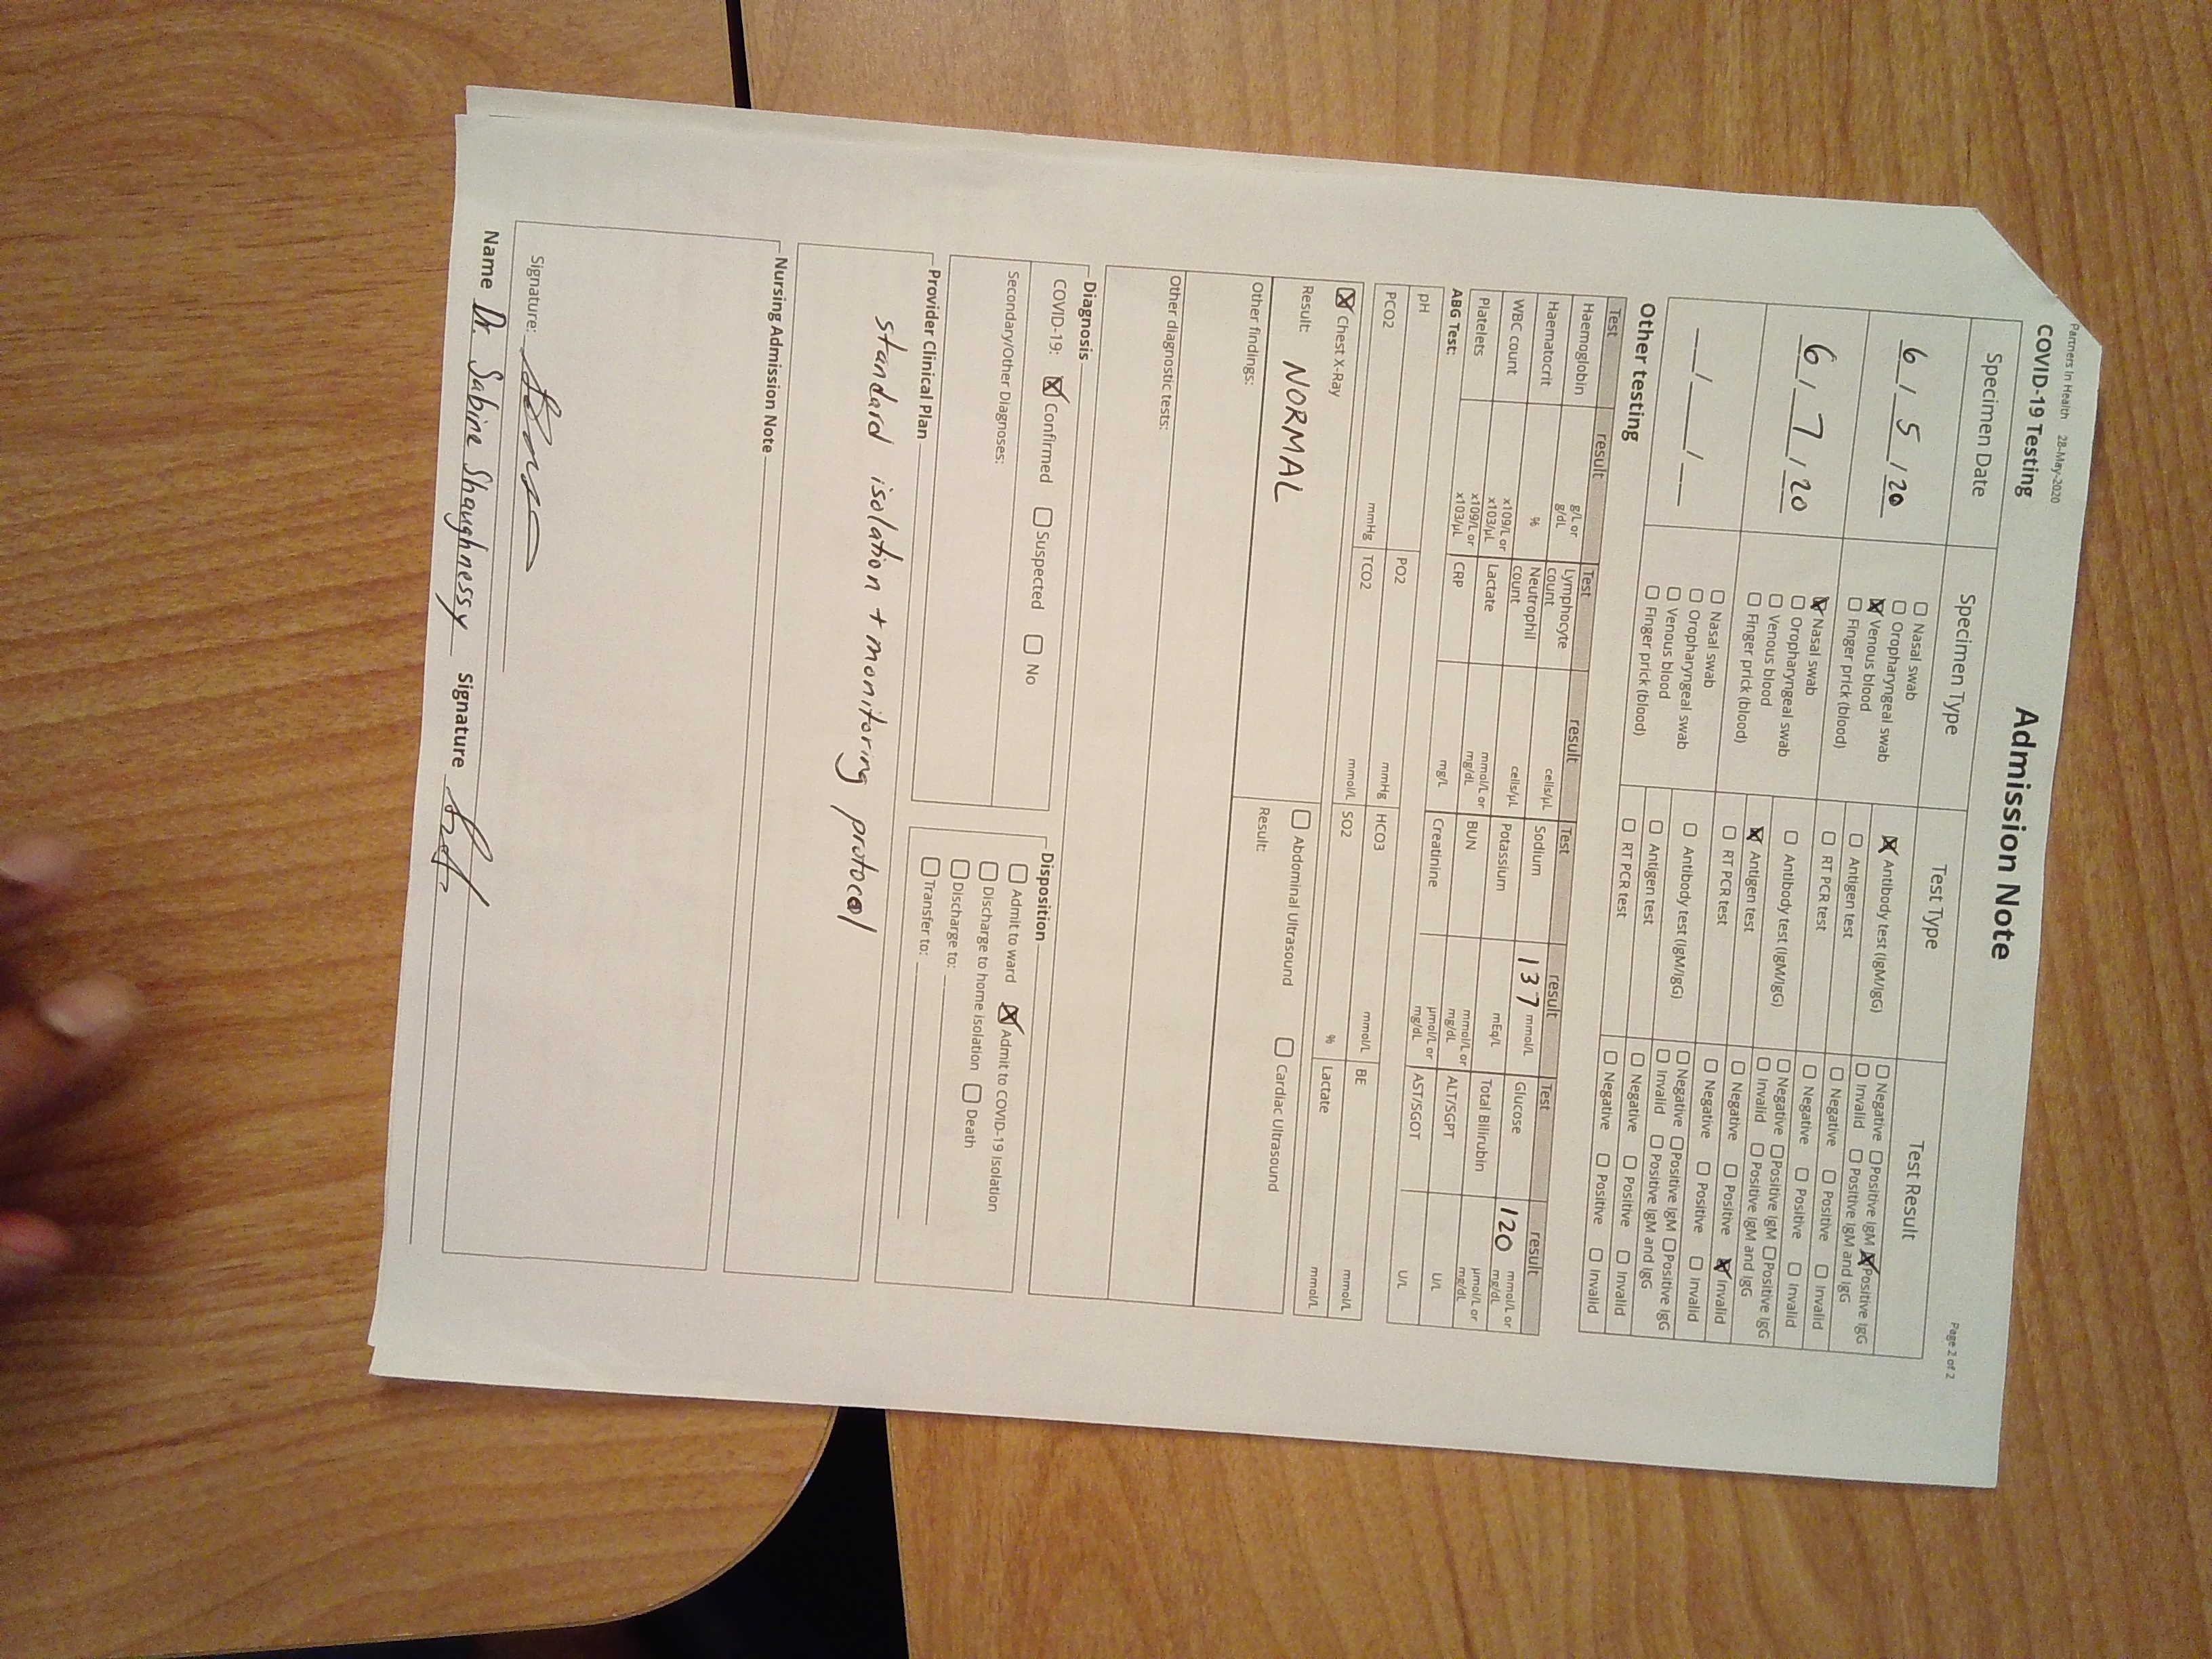 Partners In Health 28-May-2020
Page 2 of 2
Admission Note
COVID-19 Testing
Specimen Date Specimen Type Test Type Test Result
6 / 5 / 20
☐ Nasal swab
☐ Oropharyngeal swab
☒ Venous blood
☐ Finger prick (blood)
☒ Antibody test (IgM/IgG) ☐ Negative ☐ Positive IgM ☒ Positive IgG
☐ Invalid ☐ Positive IgM and IgG
☐ Antigen test ☐ Negative ☐ Positive ☐ Invalid
☐ RT PCR test ☐ Negative ☐ Positive ☐ Invalid
6 / 7 / 20
☒ Nasal swab
☐ Oropharyngeal swab
☐ Venous blood
☐ Finger prick (blood)
☐ Antibody test (IgM/IgG) ☐ Negative ☐ Positive IgM ☐ Positive IgG
☐ Invalid ☐ Positive IgM and IgG
☒ Antigen test ☐ Negative ☐ Positive ☒ Invalid
☐ RT PCR test ☐ Negative ☐ Positive ☐ Invalid
__/__/__
☐ Nasal swab
☐ Oropharyngeal swab
☐ Venous blood
☐ Finger prick (blood)
☐ Antibody test (IgM/IgG) ☐ Negative ☐ Positive IgM ☐ Positive IgG
☐ Invalid ☐ Positive IgM and IgG
☐ Antigen test ☐ Negative ☐ Positive ☐ Invalid
☐ RT PCR test ☐ Negative ☐ Positive ☐ Invalid
Other testing
Test result Test result Test result Test result
Haemoglobin g/L or g/dL Lymphocyte count cells/µL Sodium 137 mmol/L Glucose 120 mmol/L or mg/dL
Haematocrit % Neutrophill count cells/µL Potassium mEq/L Total Bilirubin µmol/L or mg/dL
WBC count x109/L or x103/µL Lactate mmol/L or mg/dL BUN mmol/L or mg/dL ALT/SGPT U/L
Platelets x109/L or x103/µL CRP mg/L Creatinine µmol/L or mg/dL AST/SGOT U/L
ABG Test:
pH PO2 mmHg HCO3 mmol/L BE mmol/L
PCO2 mmHg TCO2 mmol/L SO2 % Lactate mmol/L
☒ Chest X-Ray ☐ Abdominal Ultrasound ☐ Cardiac Ultrasound
Result: NORMAL Result:
Other findings:
Other diagnostic tests:
Diagnosis
COVID-19: ☒ Confirmed ☐ Suspected ☐ No
Secondary/Other Diagnoses:
Disposition
☐ Admit to ward ☒ Admit to COVID-19 Isolation
☐ Discharge to home isolation ☐ Death
☐ Discharge to:
☐ Transfer to:
Provider Clinical Plan
standard isolation + monitoring protocol
Nursing Admission Note
Signature:
Name Dr. Sabine Shaughnessy Signature